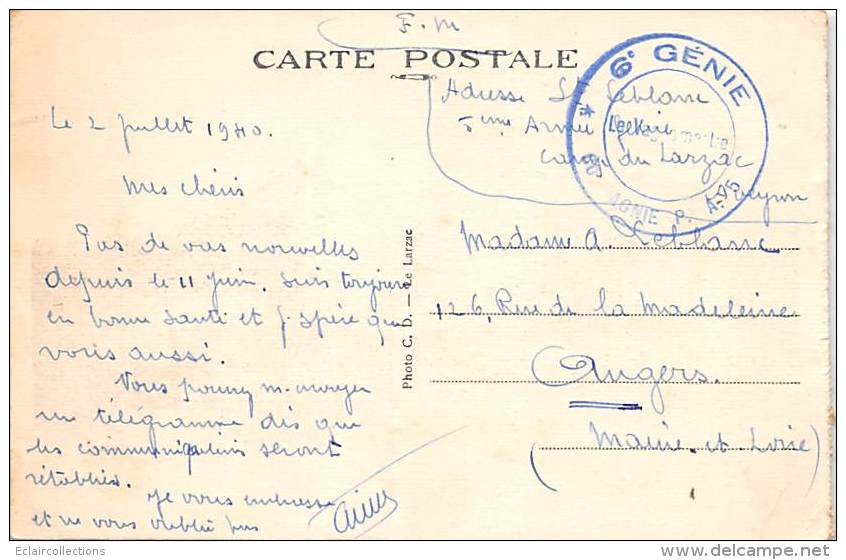 F. M
CARTE POSTALE
6e GÉNIE
Adresse St Leblanc
5ème Armée Génie
Camp du Larzac
Aveyron
Le 2 juillet 1940.
Mes chéris
Pas de vos nouvelles
depuis le 11 Juin. suis toujours
en bonne santé et j'espère que
vous aussi.
Vous pourrez m'envoyer
un télégramme dès que
les communications seront
rétablies.
Je vous embrasse
et ne vous oublie pas
Photo C. D. — Le Larzac
Madame A. Leblanc
126, Rue de la Madeleine
Angers.
(Maine et Loire)
Eclaircollections
http://eclaircollections.delcampe.net